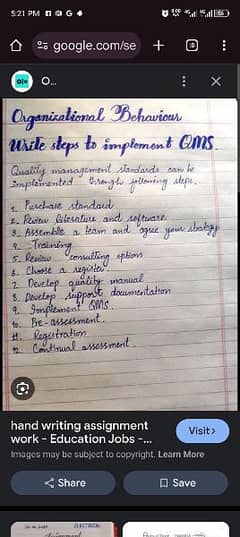 5:21 PM
google.com/se
O...
Organizational Behaviour
Write steps to implement QMS.
Quality management standards can be
implemented through following steps.
1. Purchase standard
2. Review literature and software
3. Assemble a team and agree your strategy
4. Training
5. Review consulting options
6. Choose a register
7. Develop quality manual
8. Develop support documentation
9. Implement QMS.
10. Pre-assessment.
11. Registration
12. Continual assessment
hand writing assignment
work - Education Jobs -...
Visit>
Images may be subject to copyright. Learn More
Share
Save
ELECTRICAL